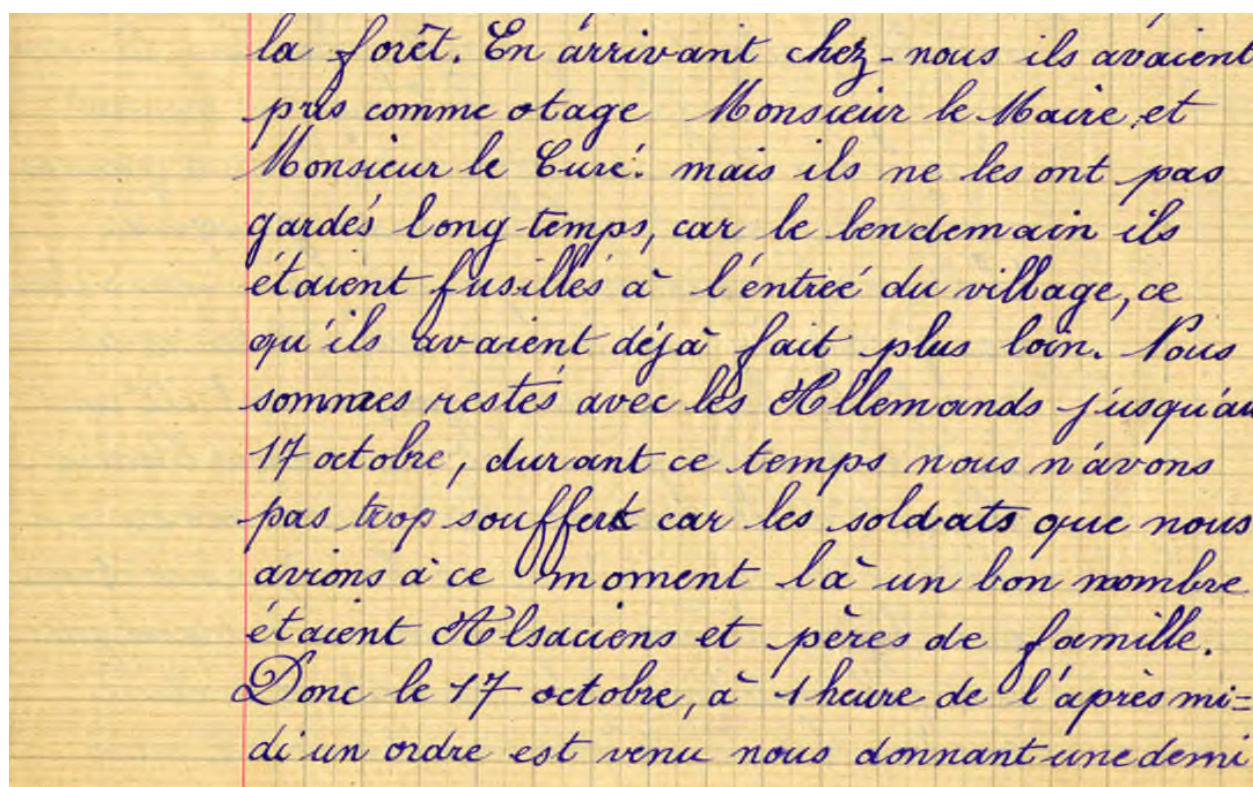 la forêt. En arrivant chez-nous ils avaient
pris comme otage Monsieur le Maire et
Monsieur le Curé. mais ils ne les ont pas
gardés long temps, car le lendemain ils
étaient fusillés à l'entrée du village, ce
qu'ils avaient déjà fait plus loin. Nous
sommes restés avec les Allemands jusqu'au
17 octobre, durant ce temps nous n'avons
pas trop souffert car les soldats que nous
avions à ce moment là un bon nombre
étaient Alsaciens et pères de famille.
Donc le 17 octobre, à 1 heure de l'après mi=
di un ordre est venu nous donnant une demi